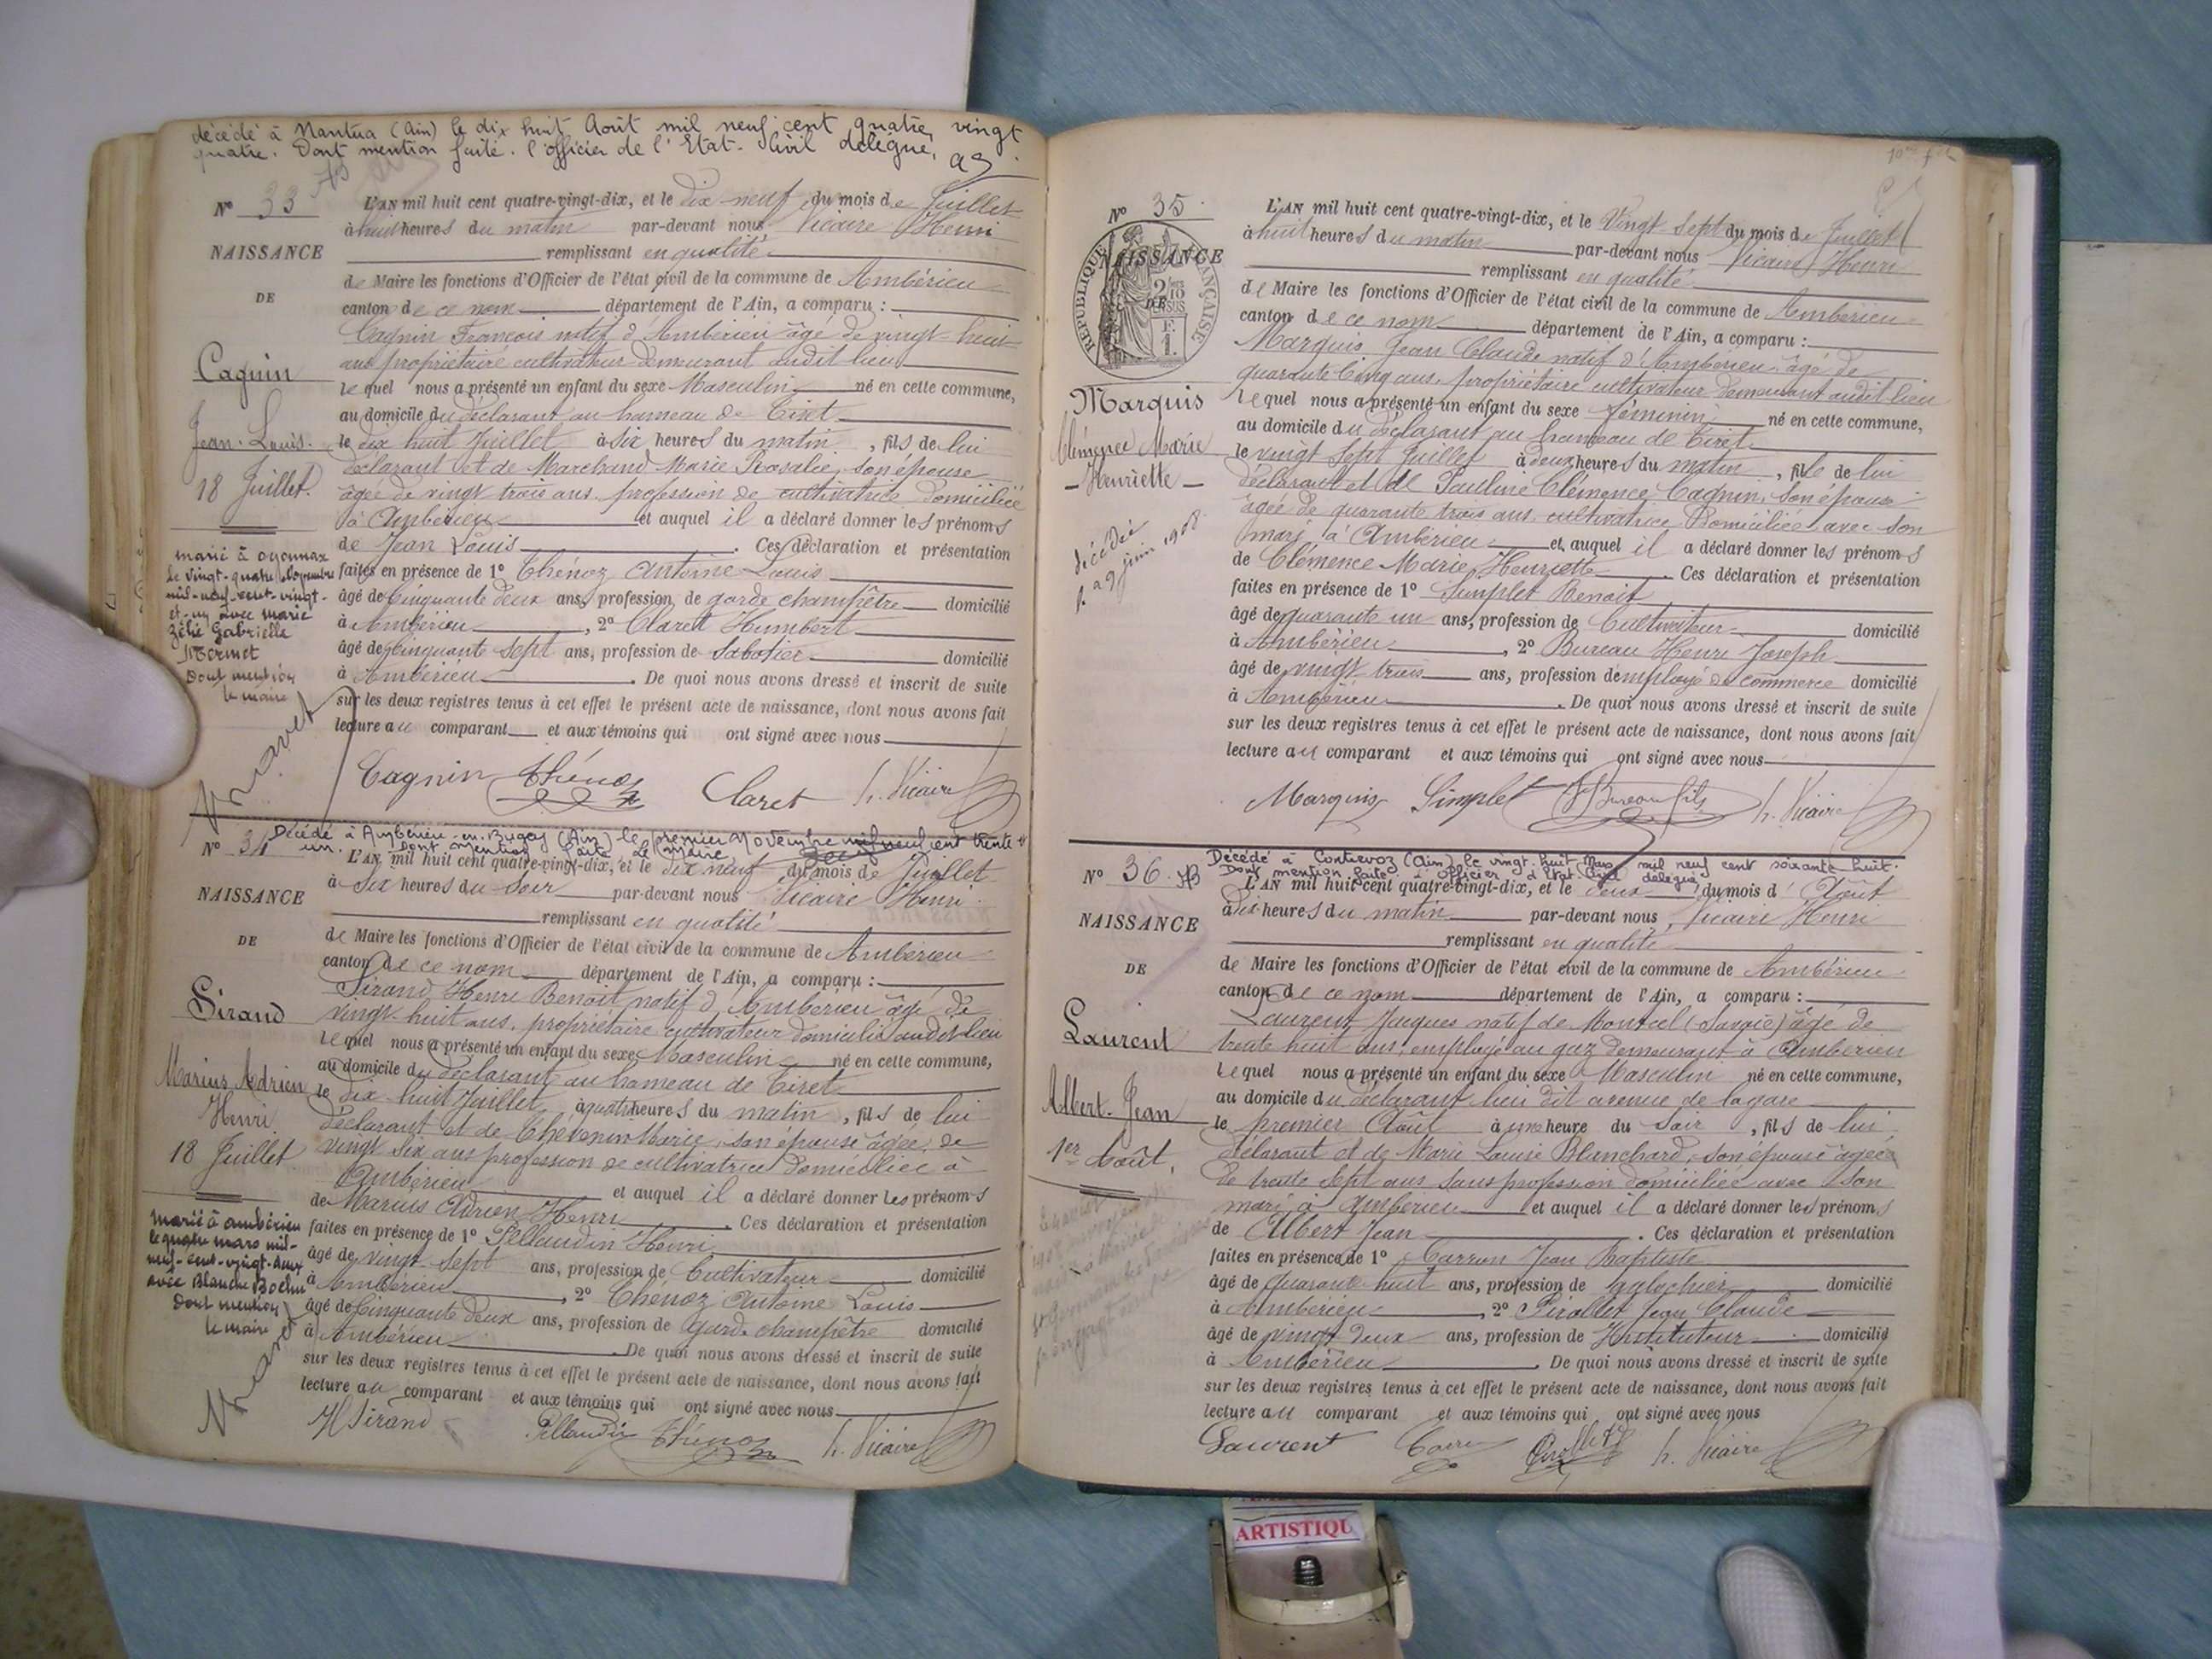 décédé à Nantua (Ain) le dix huit Août mil neuf cent quatre vingt
quatre. Dont mention faite. l'officier de l'Etat-Civil délégué,
N° 33
NAISSANCE
DE
Cagnin
Jean-Louis.
18 Juillet.
marié à oyonnax
le vingt-quatre Novembre
mil-neuf-cent-vingt-
et-un avec Marie
Zélie Gabrielle
Mermet
Dont mention
le maire
L'AN mil huit cent quatre-vingt-dix, et le dix-neuf du mois de Juillet
à huit heures du matin par-devant nous Vicaire Henri
remplissant en qualité
de Maire les fonctions d'Officier de l'état civil de la commune de Ambérieu
canton de ce nom département de l'Ain, a comparu :
Cagnin François natif d'Ambérieu âgé de vingt-huit
ans propriétaire cultivateur demeurant audit lieu
lequel nous a présenté un enfant du sexe Masculin né en cette commune,
au domicile du déclarant au hameau de Tiret
le dix huit Juillet à six heures du matin, fils de lui
déclarant et de Marchand Marie Rosalie, son épouse
âgée de vingt trois ans profession de cultivatrice domiciliée
à Ambérieu et auquel il a déclaré donner les prénoms
de Jean Louis. Ces déclaration et présentation
faites en présence de 1° Thénoz Antoine Louis
âgé de Cinquante deux ans, profession de garde champêtre domicilié
à Ambérieu, 2° Claret Humbert
âgé de Cinquante sept ans, profession de Sabotier domicilié
à Ambérieu. De quoi nous avons dressé et inscrit de suite
sur les deux registres tenus à cet effet le présent acte de naissance, dont nous avons fait
lecture au comparant et aux témoins qui ont signé avec nous
Cagnin Thénoz Claret h. Vicaire
Décédé à Ambérieu-en-Bugey (Ain) le premier Novembre mil neuf cent trente et
un. Dont mention faite Le Maire
N° 34
NAISSANCE
DE
Sirand
Marius Adrien
Henri
18 Juillet
Marié à ambérieu
le quatre mars mil-
neuf-cent-vingt-deux
avec Blanche
Dont mention
le maire
L'AN mil huit cent quatre-vingt-dix, et le dix neuf du mois de Juillet
à Six heures du Soir par-devant nous Vicaire Henri
remplissant en qualité
de Maire les fonctions d'Officier de l'état civil de la commune de Ambérieu
canton de ce nom département de l'Ain, a comparu :
Sirand Henri Benoît natif d'Ambérieu âgé de
vingt-huit ans, propriétaire cultivateur domicilié audit lieu
lequel nous a présenté un enfant du sexe Masculin né en cette commune,
au domicile du déclarant au hameau de Tiret
le dix huit Juillet à quatre heures du matin, fils de lui
déclarant et de Thévenin Marie, son épouse âgée de
vingt six ans profession de cultivatrice domiciliée à
Ambérieu et auquel il a déclaré donner les prénoms
de Marius Adrien Henri. Ces déclaration et présentation
faites en présence de 1° Pellaudin Henri
âgé de vingt-sept ans, profession de Cultivateur domicilié
à Ambérieu, 2° Thénoz Antoine Louis
âgé de Cinquante deux ans, profession de garde champêtre domicilié
à Ambérieu. De quoi nous avons dressé et inscrit de suite
sur les deux registres tenus à cet effet le présent acte de naissance, dont nous avons fait
lecture au comparant et aux témoins qui ont signé avec nous
H Sirand Pellaudin Thénoz h. Vicaire
N° 35
NAISSANCE
DE
RÉPUBLIQUE FRANÇAISE
Marquis
Clémence Marie
- Henriette -
décédée
juin 1908
L'AN mil huit cent quatre-vingt-dix, et le Vingt Sept du mois de Juillet
à huit heures du matin par-devant nous Vicaire Henri
remplissant en qualité
de Maire les fonctions d'Officier de l'état civil de la commune de Ambérieu
canton de ce nom département de l'Ain, a comparu :
Marquis Jean Claude natif d'Ambérieu âgé de
quarante cinq ans, propriétaire cultivateur demeurant audit lieu
lequel nous a présenté un enfant du sexe féminin né en cette commune,
au domicile du déclarant au hameau de Tiret
le vingt Sept Juillet à deux heures du matin, fille de lui
déclarant et de Pauline Clémence Cagnin, son épouse
âgée de quarante trois ans, cultivatrice Domiciliée avec son
mari à Ambérieu et auquel il a déclaré donner les prénoms
de Clémence Marie Henriette. Ces déclaration et présentation
faites en présence de 1° Simplet Benoît
âgé de quarante un ans, profession de Cultivateur domicilié
à Ambérieu, 2° Bureau Henri Joseph
âgé de vingt trois ans, profession d'employé de commerce domicilié
à Ambérieu. De quoi nous avons dressé et inscrit de suite
sur les deux registres tenus à cet effet le présent acte de naissance, dont nous avons fait
lecture au comparant et aux témoins qui ont signé avec nous
Marquis Simplet Bureau fils h. Vicaire
Décédé à Contrevoz (Ain) le vingt-huit Mars mil neuf cent soixante-huit.
Dont mention faite L'officier d'Etat Civil délégué,
N° 36
NAISSANCE
DE
Laurent
Albert-Jean
1er Août,
L'AN mil huit cent quatre-vingt-dix, et le deux du mois d'Août
à dix heures du matin par-devant nous Vicaire Henri
remplissant en qualité
de Maire les fonctions d'Officier de l'état civil de la commune de Ambérieu
canton de ce nom département de l'Ain, a comparu :
Laurent Jacques natif de Montcel (Savoie) âgé de
trente huit ans, employé au gaz demeurant à Ambérieu
lequel nous a présenté un enfant du sexe Masculin né en cette commune,
au domicile du déclarant lieu dit avenue de la gare
le premier Août à une heure du Soir, fils de lui
déclarant et de Marie Louise Blanchard, son épouse âgée
de trente sept ans sans profession domiciliée avec son
mari à Ambérieu et auquel il a déclaré donner les prénoms
de Albert Jean. Ces déclaration et présentation
faites en présence de 1° Carron Jean Baptiste
âgé de quarante-huit ans, profession de galochier domicilié
à Ambérieu, 2° Pirollet Jean Claude
âgé de vingt deux ans, profession de Instituteur domicilié
à Ambérieu. De quoi nous avons dressé et inscrit de suite
sur les deux registres tenus à cet effet le présent acte de naissance, dont nous avons fait
lecture au comparant et aux témoins qui ont signé avec nous
Laurent h. Vicaire
ARTISTIQU